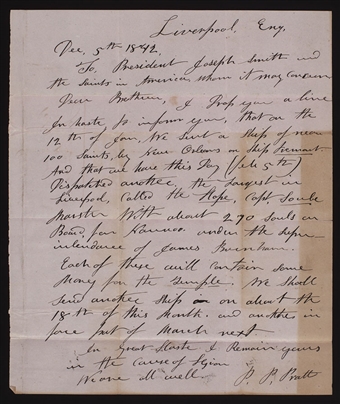 Liverpool, Eng,
Dec, 5th 1842,
To, President Joseph Smith and
the Saints in America, whom it may concern
Dear Brethren, I Drop you a line
In haste to inform you, that on the
12th of Jan, We Sent a Ship of near
100 Saints, by New Orleans on Ship Tremont.
And that we have this Day (Feb 5th)
Dispatched another, the Largest in
Liverpool, Called the Hope, Capt Soule
Master With about 270 souls on
Board for Nauvoo under the Super-
intendance of James Burnham.
Each of these will contain some
Money for the Temple. We Shall
Send another Ship on about the
18th of this Month. and another in
fore part of March next
In Great Haste I Remain yours
in the Cause of Zion
We are all well. P. P. Pratt